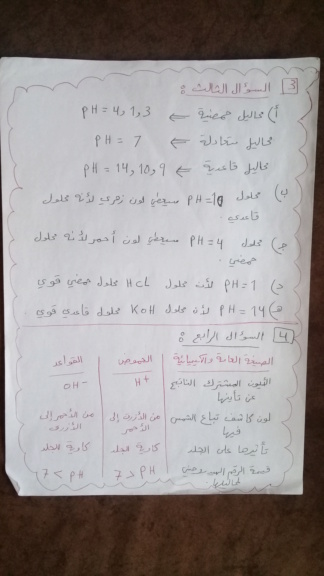 3 السؤال الثالث :
أ) محاليل حمضية ⇐ pH = 4 و 1 و 3
محاليل متعادلة ⇐ pH = 7
محاليل قاعدية ⇐ pH = 14 و 10 و 9
ب) محلول pH = 10 سيعطي لون زهري لأنه محلول
قاعدي.
ج) محلول pH = 4 سيعطي لون أحمر لأنه محلول
حمضي.
د) pH = 1 لأن محلول HCL محلول حمضي قوي
هـ) pH = 14 لأن محلول KOH محلول قاعدي قوي
4 السؤال الرابع :
الصفة العامة والكيميائية الحموض القواعد
الأيون المشترك الناتج H+ OH-
عن تأينها
لون كاشف تباع الشمس من الأزرق إلى من الأحمر إلى
فيها الأحمر الأزرق
تأثيرها على الجلد كاوية للجلد كاوية للجلد
قيمة الرقم الهيدروجيني 7 > pH 7 < pH
لمحاليلها